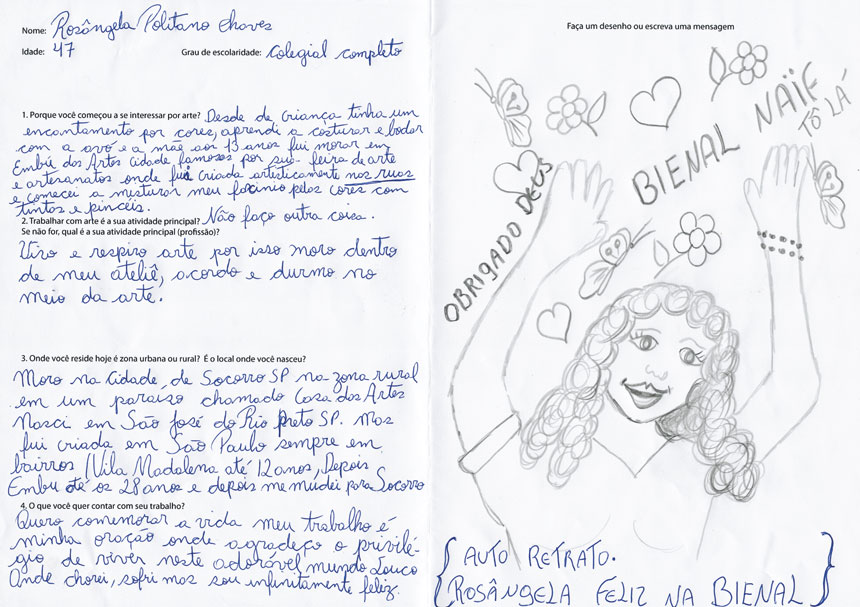 Nome: Rosângela Politano Chaves
Idade: 47 Grau de escolaridade: Colegial completo
1. Porque você começou a se interessar por arte? Desde de criança tinha um
encantamento por cores, aprendi a costurar e bodar
com a avó e a mãe aos 13 anos fui morar em
Embú das Artes cidade famosas por sua feira de arte
e artesanatos onde fui criada artisticamente nas ruas
e comecei a misturar meu facinio pelas cores com
tintas e pincéis.
2. Trabalhar com arte é a sua atividade principal? Não faço outra coisa.
Se não for, qual é a sua atividade principal (profissão)?
Vivo e respiro arte por isso moro dentro
de meu ateliê, acordo e durmo no
meio da arte.
3. Onde você reside hoje é zona urbana ou rural? É o local onde você nasceu?
Moro na Cidade, de Socorro SP na zona rural
em um paraiso chamado Casa das Artes
Nasci em São José do Rio preto SP. Mas
fui criada em São Paulo sempre em
bairros (Vila Madalena até 12 anos, Depois
Embu até os 28 anos e depois me mudei para Socorro
4. O que você quer contar com seu trabalho?
Quero comemorar a vida meu trabalho é
minha oração onde agradeço o privilé-
gio de viver neste adorável mundo Louco
Onde chorei, sofri mas sou infinitamente feliz.
Faça um desenho ou escreva uma mensagem
BIENAL NAÏF
TÔ LÁ
OBRIGADO DEUS
{ AUTO RETRATO.
ROSÂNGELA FELIZ NA BIENAL }